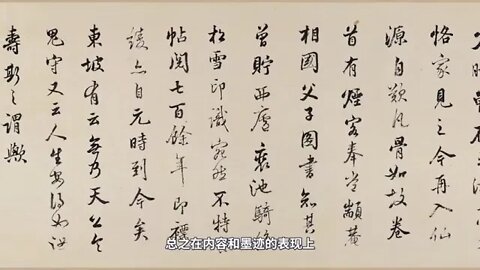 恪家見之今再入仙
源自歎凡骨如故卷
首有煙客奉常顓菴
相國父子圖書知其
曾貯西廬
松雪印識宛然不特
帖閱七百餘年即裱
綾亦自元時到今矣
東坡有云無乃天公令
鬼守又云人生安得如汝
壽斯之謂歟
总之在内容和墨迹的表现上